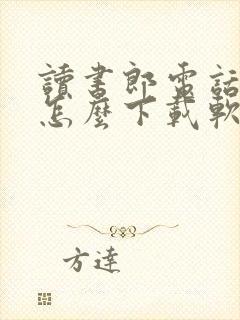 讀書郎電話
怎麼下載軟
方達